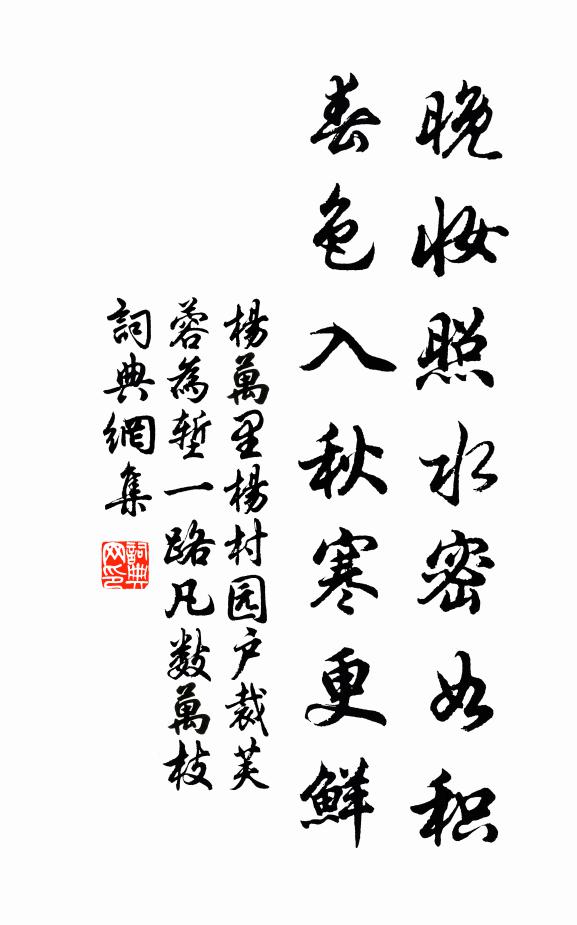 晚妆照水密如积
春色入秋寒更鲜
楊萬里楊村园户裁芙
蓉為堑一路凡数萬枝
詞典網集
詞典
网印